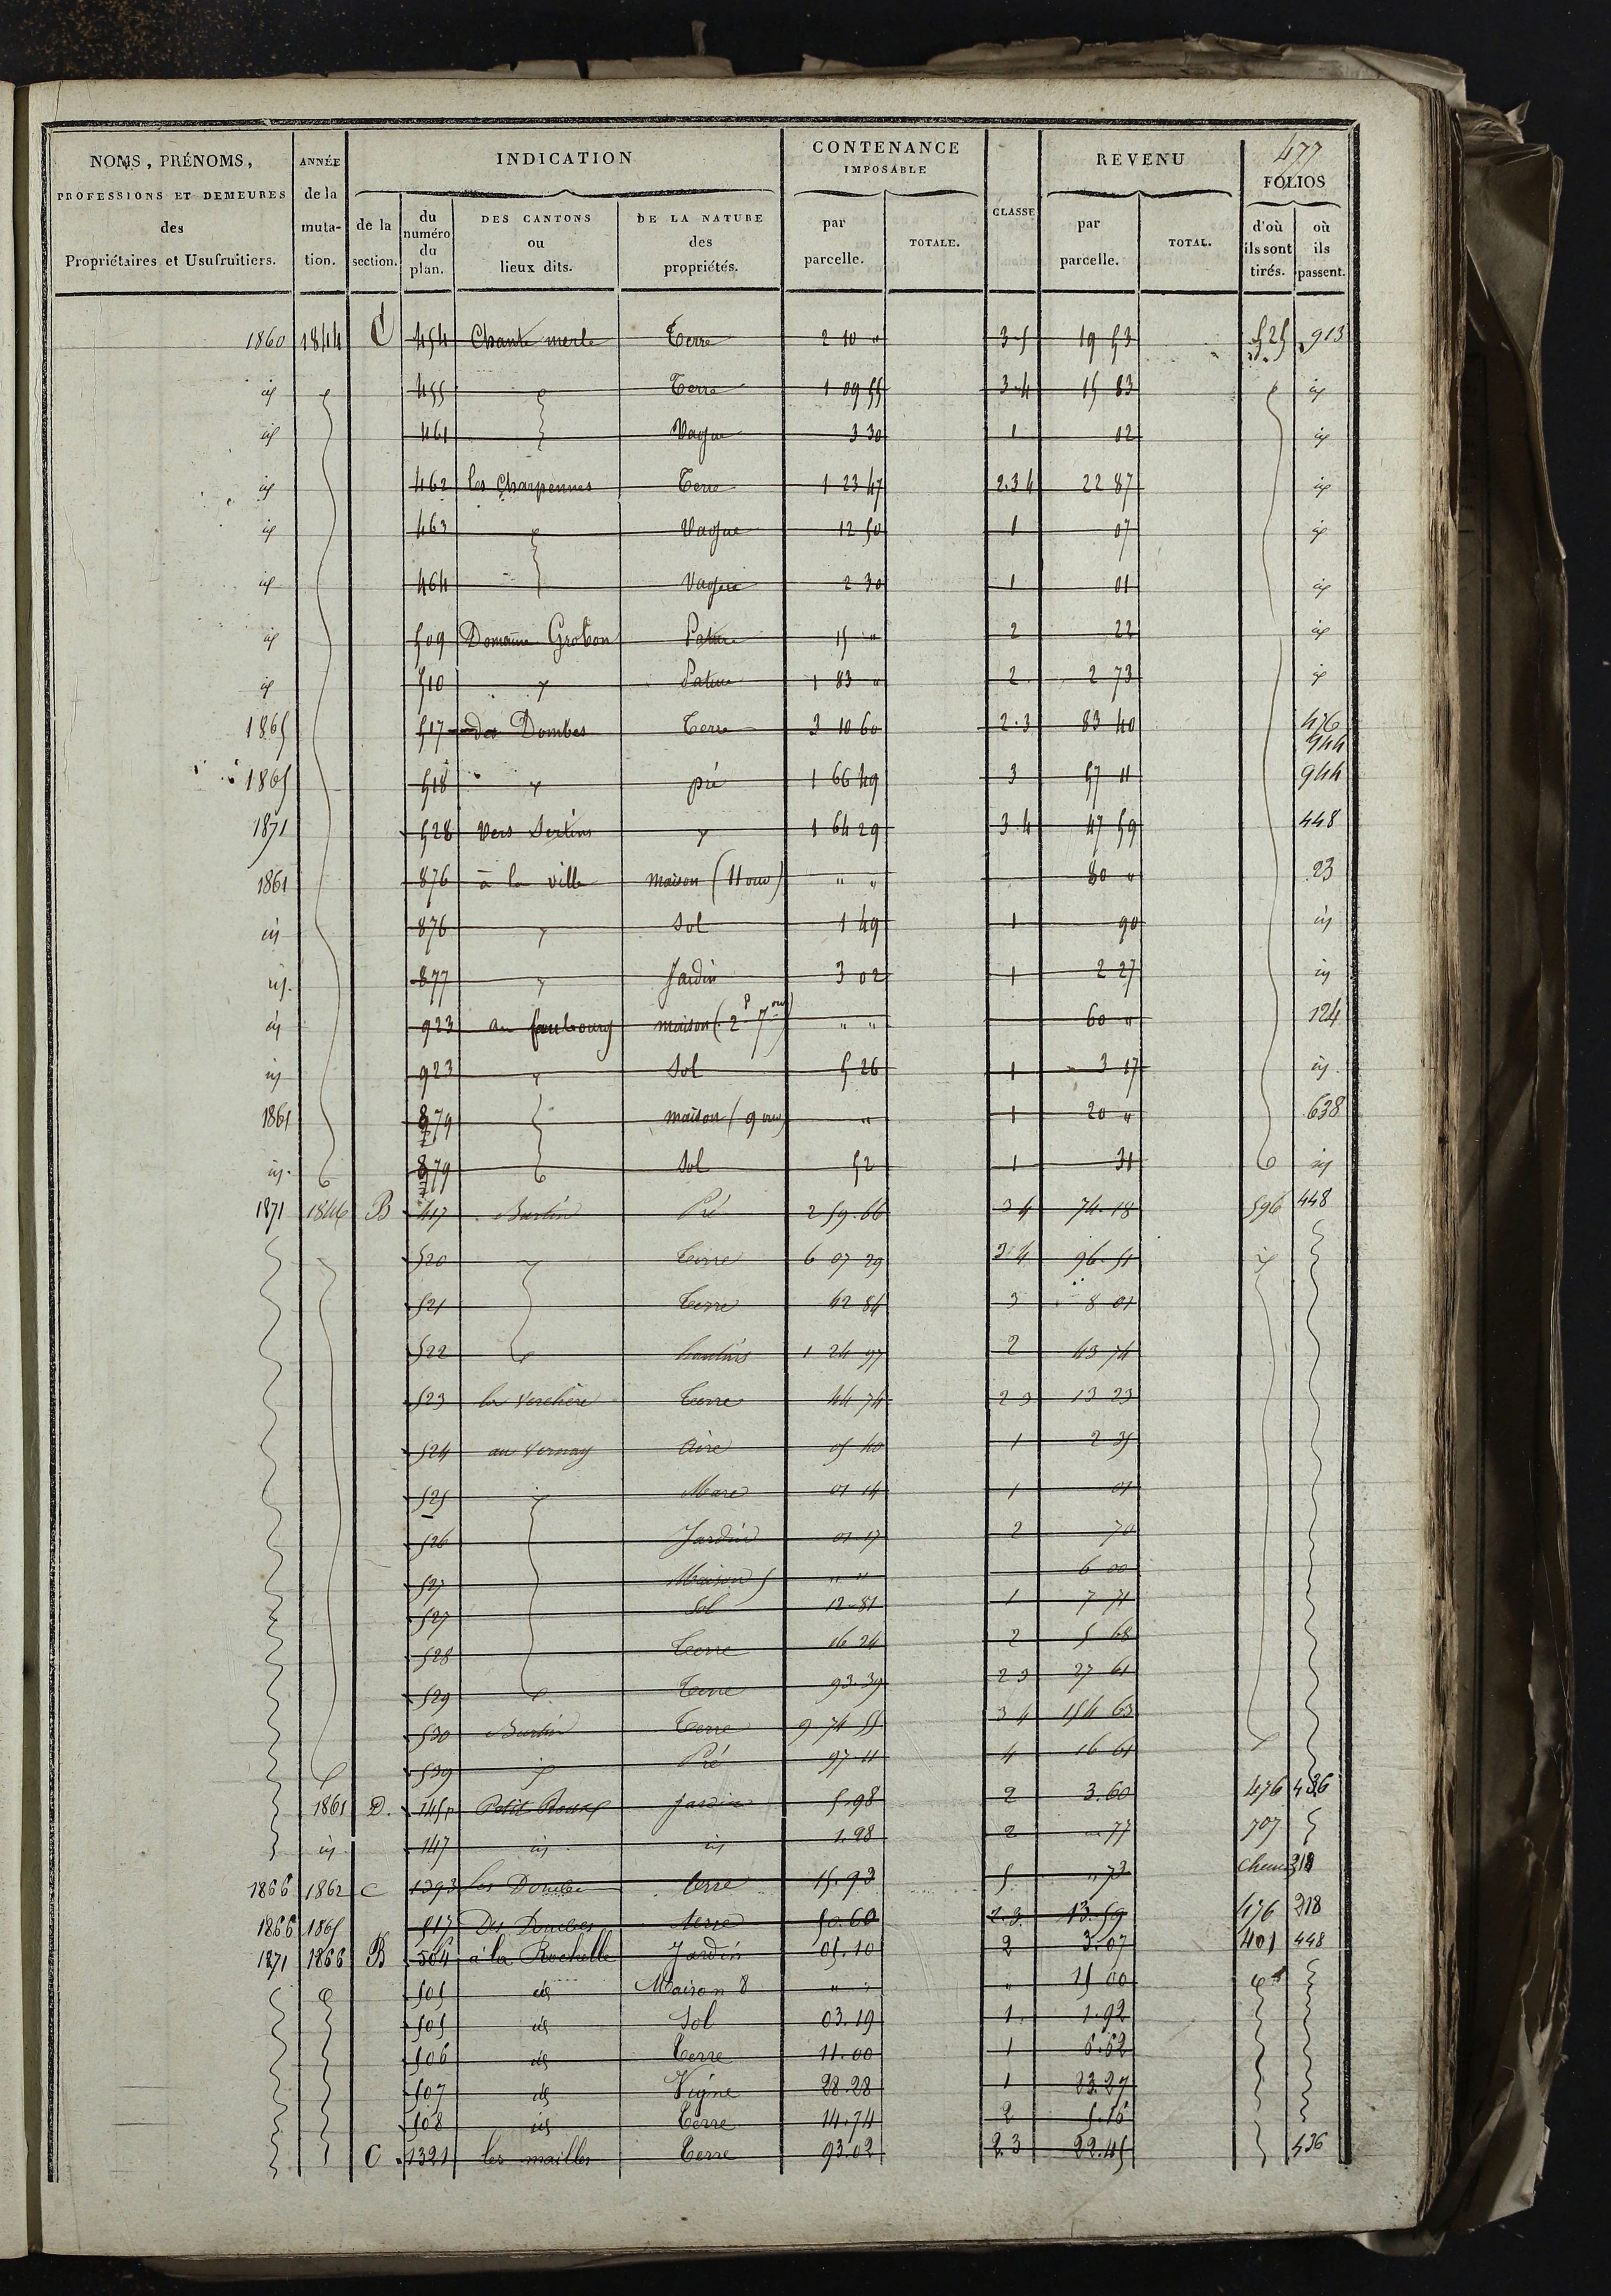 477
NOMS, PRÉNOMS,
PROFESSIONS ET DEMEURES
des
Propriétaires et Usufruitiers.
ANNÉE
de la
muta-
tion.
INDICATION
de la
section.
du
numéro
du
plan.
DES CANTONS
ou
lieux dits.
DE LA NATURE
des
propriétés.
CONTENANCE
IMPOSABLE
par
parcelle.
TOTALE.
CLASSE
REVENU
par
parcelle.
TOTAL.
FOLIOS
d'où
ils sont
tirés.
où
ils
passent.
1860 1844 C 454 Chante merle Terre 2 10 " 3-5 19 53 525 913
id 455 Terre 1 09 55 3-4 15 83 id
id 461 Vague 3 30 1 02 id
id 462 les Charpennes Terre 1 23 47 2.3 4 22 87 id
id 463 Vague 12 50 1 07 id
id 464 Vague 2 30 1 01 id
id 509 Domaine Grobon Pature 15 " 2 22 id
id 510 Pature 1 83 " 2 2 73 id
1865 517 des Dombes Terre 3 10 60 2.3 83 40 476
944
1865 518 pré 1 66 49 3 57 11 944
1871 528 Vers 1 64 29 3 4 47 59 448
1861 876 à la ville maison (11 ouv) " " 80 " 23
id 876 Sol 1 49 1 90 id
id. 877 Jardin 3 02 1 2 27 id
id 923 au faubourg maison (2 P 7 ouv) " " 60 " 124
id 923 Sol 5 26 1 3 17 id
1861 879 maison (9 ouv) " 1 20 " 638
id. 879 Sol 52 1 31 id
1871 1846 B 417 Burlin Pré 2 59.66 3 4 74.18 596 448
520 Terre 6 07 29 3 4 96.51
521 Terre 42 84 3 8 01
522 hautins 1 24 97 2 43 74
523 la Verchère Terre 44 74 2 3 13 23
524 au Vernay Aire 05 40 1 2 35
525 Mare 01 14 1 01
526 Jardin 01 17 2 70
527 Maison 5 " " 6 00
527 Sol 12-81 1 7 71
528 Terre 16 24 2 5 68
529 Terre 93.39 2 3 27 61
530 Burlin Terre 9 74 55 3 4 154 63
539 Pré 97 11 4 16 61
1861 D. 145p Petit Jardin 5.98 2 3.60 476 436
id. 147 id id 1.28 2 77 707
1866 1862 C 1393 les Dombes terre 15.93 5 " 73 Chem 218
1866 1865 517 Des Dombes terre 50.60 2.3. 13.59 476 218
1871 1866 B 504 à la Rochelle Jardin 05.10 2 3.07 401 448
505 id Maison 8 " " " 15 00 id
505 id Sol 03.19 1 1.92
506 id Terre 11.00 1 6.62
507 id Vigne 28.28 1 23.27
508 id Terre 14.74 2 5.16
C. 1321 les mailles Terre 93.02 2.3 22.45 436